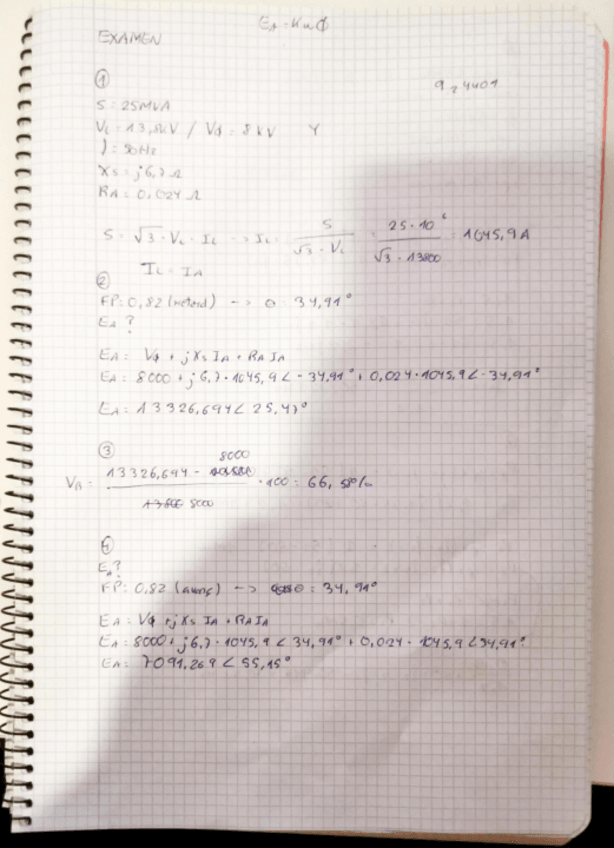 EA = K ω Φ
EXAMEN
①
S = 25MVA
VL = 13,8kV / Vφ = 8 kV Y
f = 50Hz
Xs = j6,7 Ω
RA = 0,024 Ω
S = √3 · VL · IL → IL = S / √3 · VL = 25 · 10⁶ / √3 · 13800 = 1045,9 A
IL = IA
②
FP = 0,82 (retard) --> θ = 34,91°
EA ?
EA = Vφ + jXs IA + RA IA
EA = 8000 + j6,7 · 1045,9 ∠ -34,91° + 0,024 · 1045,9 ∠ -34,91°
EA = 13326,694 ∠ 25,47°
③
VR = 13326,694 - 8000 / 8000 · 100 = 66,58%
④
EA?
FP = 0,82 (avanç) --> θ = 34,91°
EA = Vφ + jXs IA + RA IA
EA = 8000 + j6,7 · 1045,9 ∠ 34,91° + 0,024 · 1045,9 ∠ 34,91°
EA = 7091,269 ∠ 55,15°